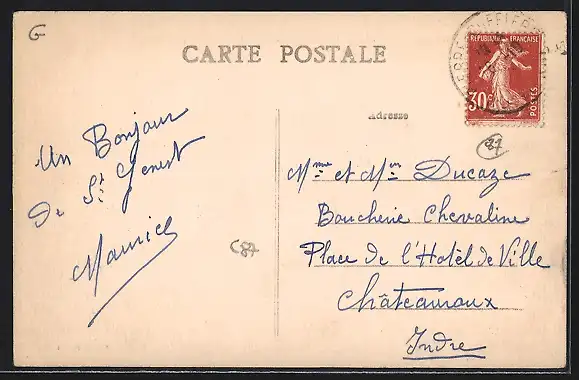 G
CARTE POSTALE
REPUBLIQUE FRANÇAISE
30c
POSTES
Adresse
87
Un Bonjour
de St Genest
Maurice
C87
Mme et Mr Ducaze
Boucherie Chevaline
Place de l'Hotêl de Ville
Châteauroux
Indre